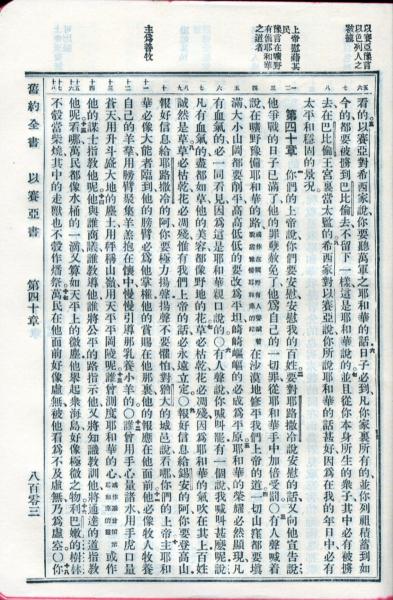 以賽亞豫言
以色列人之
上帝慰藉其
民
豫言在曠野
有備耶和華
之道者
主為善牧
看的以賽亞對希西家說你要聽萬軍之耶和華的話日子必到凡你家裏所有的並你列祖積蓄到如
今的都要被擄到巴比倫去不留下一樣這是耶和華說的並且從你本身所生的衆子其中必有被擄
去在巴比倫王宮裏當太監的希西家對以賽亞說你所說耶和華的話甚好因為在我的年日中必有
太平和穩固的景況
第四十章 你們的上帝說你們要安慰安慰我的百姓要對耶路撒冷說安慰的話又向他宣告說
他爭戰的日子已滿了他的罪孽赦免了他為自己的一切罪從耶和華手中加倍受罰○有人聲喊着
說在曠野豫備耶和華的路 在沙漠地修平我們上帝的道一切山窪都要填
滿大小山岡都要削平高高低低的要改為平坦崎崎嶇嶇的必成為平原耶和華的榮耀必然顯現凡
有血氣的必一同看見因為這是耶和華親口說的○有人聲說你喊叫罷有一個說我喊叫甚麼呢說
凡有血氣的盡都如草他的美容都像野地的花草必枯乾花必凋殘因為耶和華的氣吹在其上百姓
誠然是草草必枯乾花必凋殘惟有我們上帝的話必永遠立定○報好信息給錫安的阿你要登高山
報好信息給耶路撒冷的阿你要極力揚聲揚聲不要懼怕對猶大的城邑說看哪你們的上帝主耶和
華必像大能者臨到他的膀臂必為他掌權他的賞賜在他那裏他的報應在他面前他必像牧人牧養
自己的羊羣用膀臂聚集羊羔抱在懷中慢慢引導那乳養小羊的○誰曾用手心量諸水用手虎口量
蒼天用升斗盛大地的塵土用秤稱山嶺用天平平岡陵呢誰曾測度耶和華的心 或作
他的謀士指教他呢他與誰商議誰教導他誰將公平的路指示他又將知識教訓他將通達的道指教
他呢看哪萬民都像水桶的一滴又算如天平上的微塵他舉起衆海島好像極微之物利巴嫩的樹林
不彀當柴燒其中的走獸也不彀作燔祭萬民在他面前好像虛無被他看為不及虛無乃為虛空○你
舊約全書 以賽亞書 第四十章 八百零三